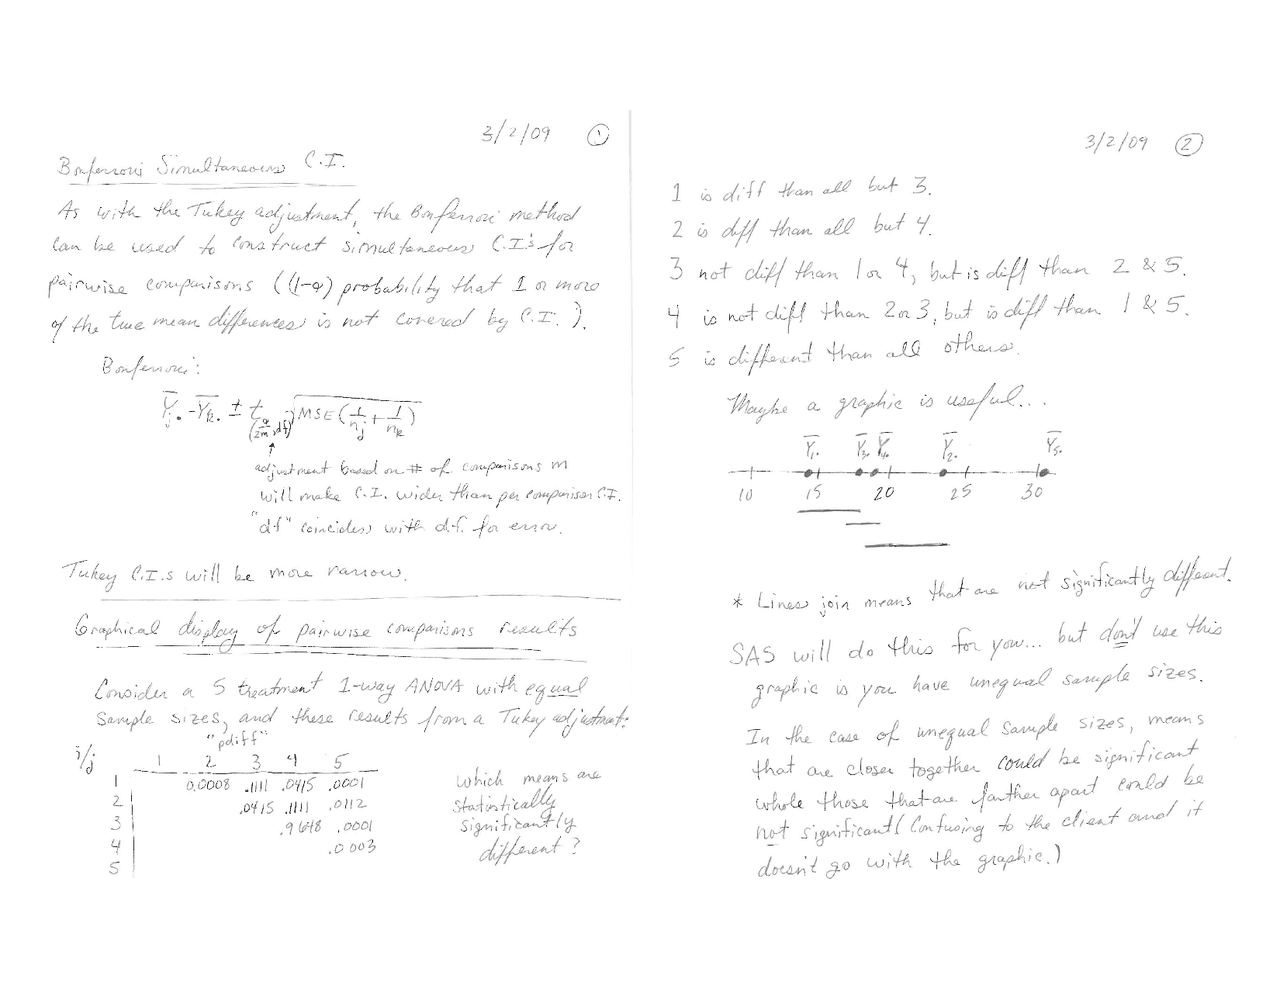 3/2/09 ①
Bonferroni Simultaneous C.I.
As with the Tukey adjustment, the Bonferroni method
can be used to construct simultaneous C.I.'s for
pairwise comparisons ((1-α) probability that 1 or more
of the true mean differences is not covered by C.I.).
Bonferroni:
Ȳj. - Ȳk. ± t(α/2m, df) √MSE(1/nj + 1/nk)
↑
adjustment based on # of comparisons m
will make C.I. wider than per comparison C.I.
"df" coincides with d.f. for error.
Tukey C.I.s will be more narrow.
Graphical display of pairwise comparisons results
Consider a 5 treatment 1-way ANOVA with equal
sample sizes, and these results from a Tukey adjustment:
"pdiff"
i/j 1 2 3 4 5
1 0.0008 .1111 .0415 .0001 which means are
2 .0415 .1111 .0112 statistically
3 .9648 .0001 significantly
4 .0003 different?
5
3/2/09 ②
1 is diff than all but 3.
2 is diff than all but 4.
3 not diff than 1 or 4, but is diff than 2 & 5.
4 is not diff than 2 or 3, but is diff than 1 & 5.
5 is different than all others.
Maybe a graphic is useful...
Ȳ1. Ȳ3. Ȳ4. Ȳ2. Ȳ5.
10 15 20 25 30
* Lines join means that are not significantly different.
SAS will do this for you... but don't use this
graphic is you have unequal sample sizes.
In the case of unequal sample sizes, means
that are closer together could be significant
whole those that are farther apart could be
not significant (Confusing to the client and it
doesn't go with the graphic.)